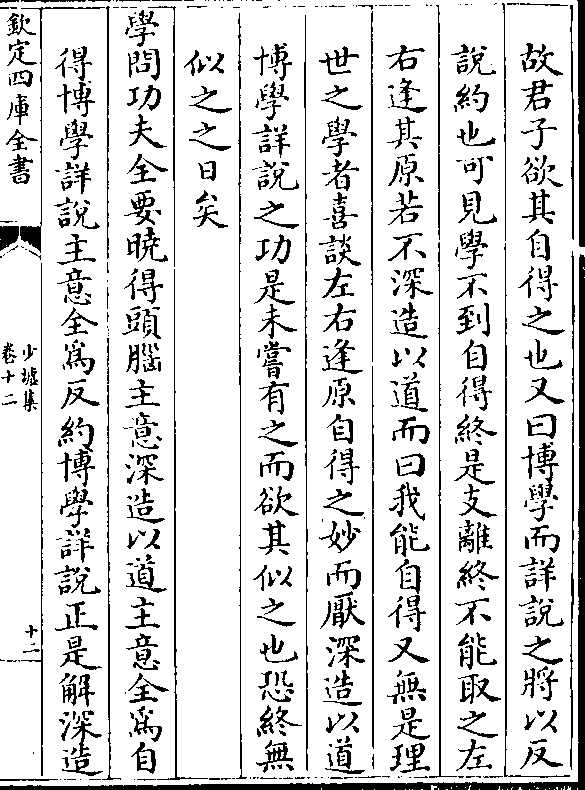 故君子欲其自得之也又曰博學而詳說之將以反
說約也可見學不到自得終是支離終不能取之左
右逢其原若不深造以道而曰我能自得又無是理
世之學者喜談左右逢原自得之妙而厭深造以道
博學詳說之功是未嘗有之而欲其似之也恐終無
似之之日矣
學問功夫全要曉得頭腦主意深造以道主意全爲自
得博學詳說主意全爲反約博學詳說正是解深造
欽定四庫全書
少墟集
卷十二
十二